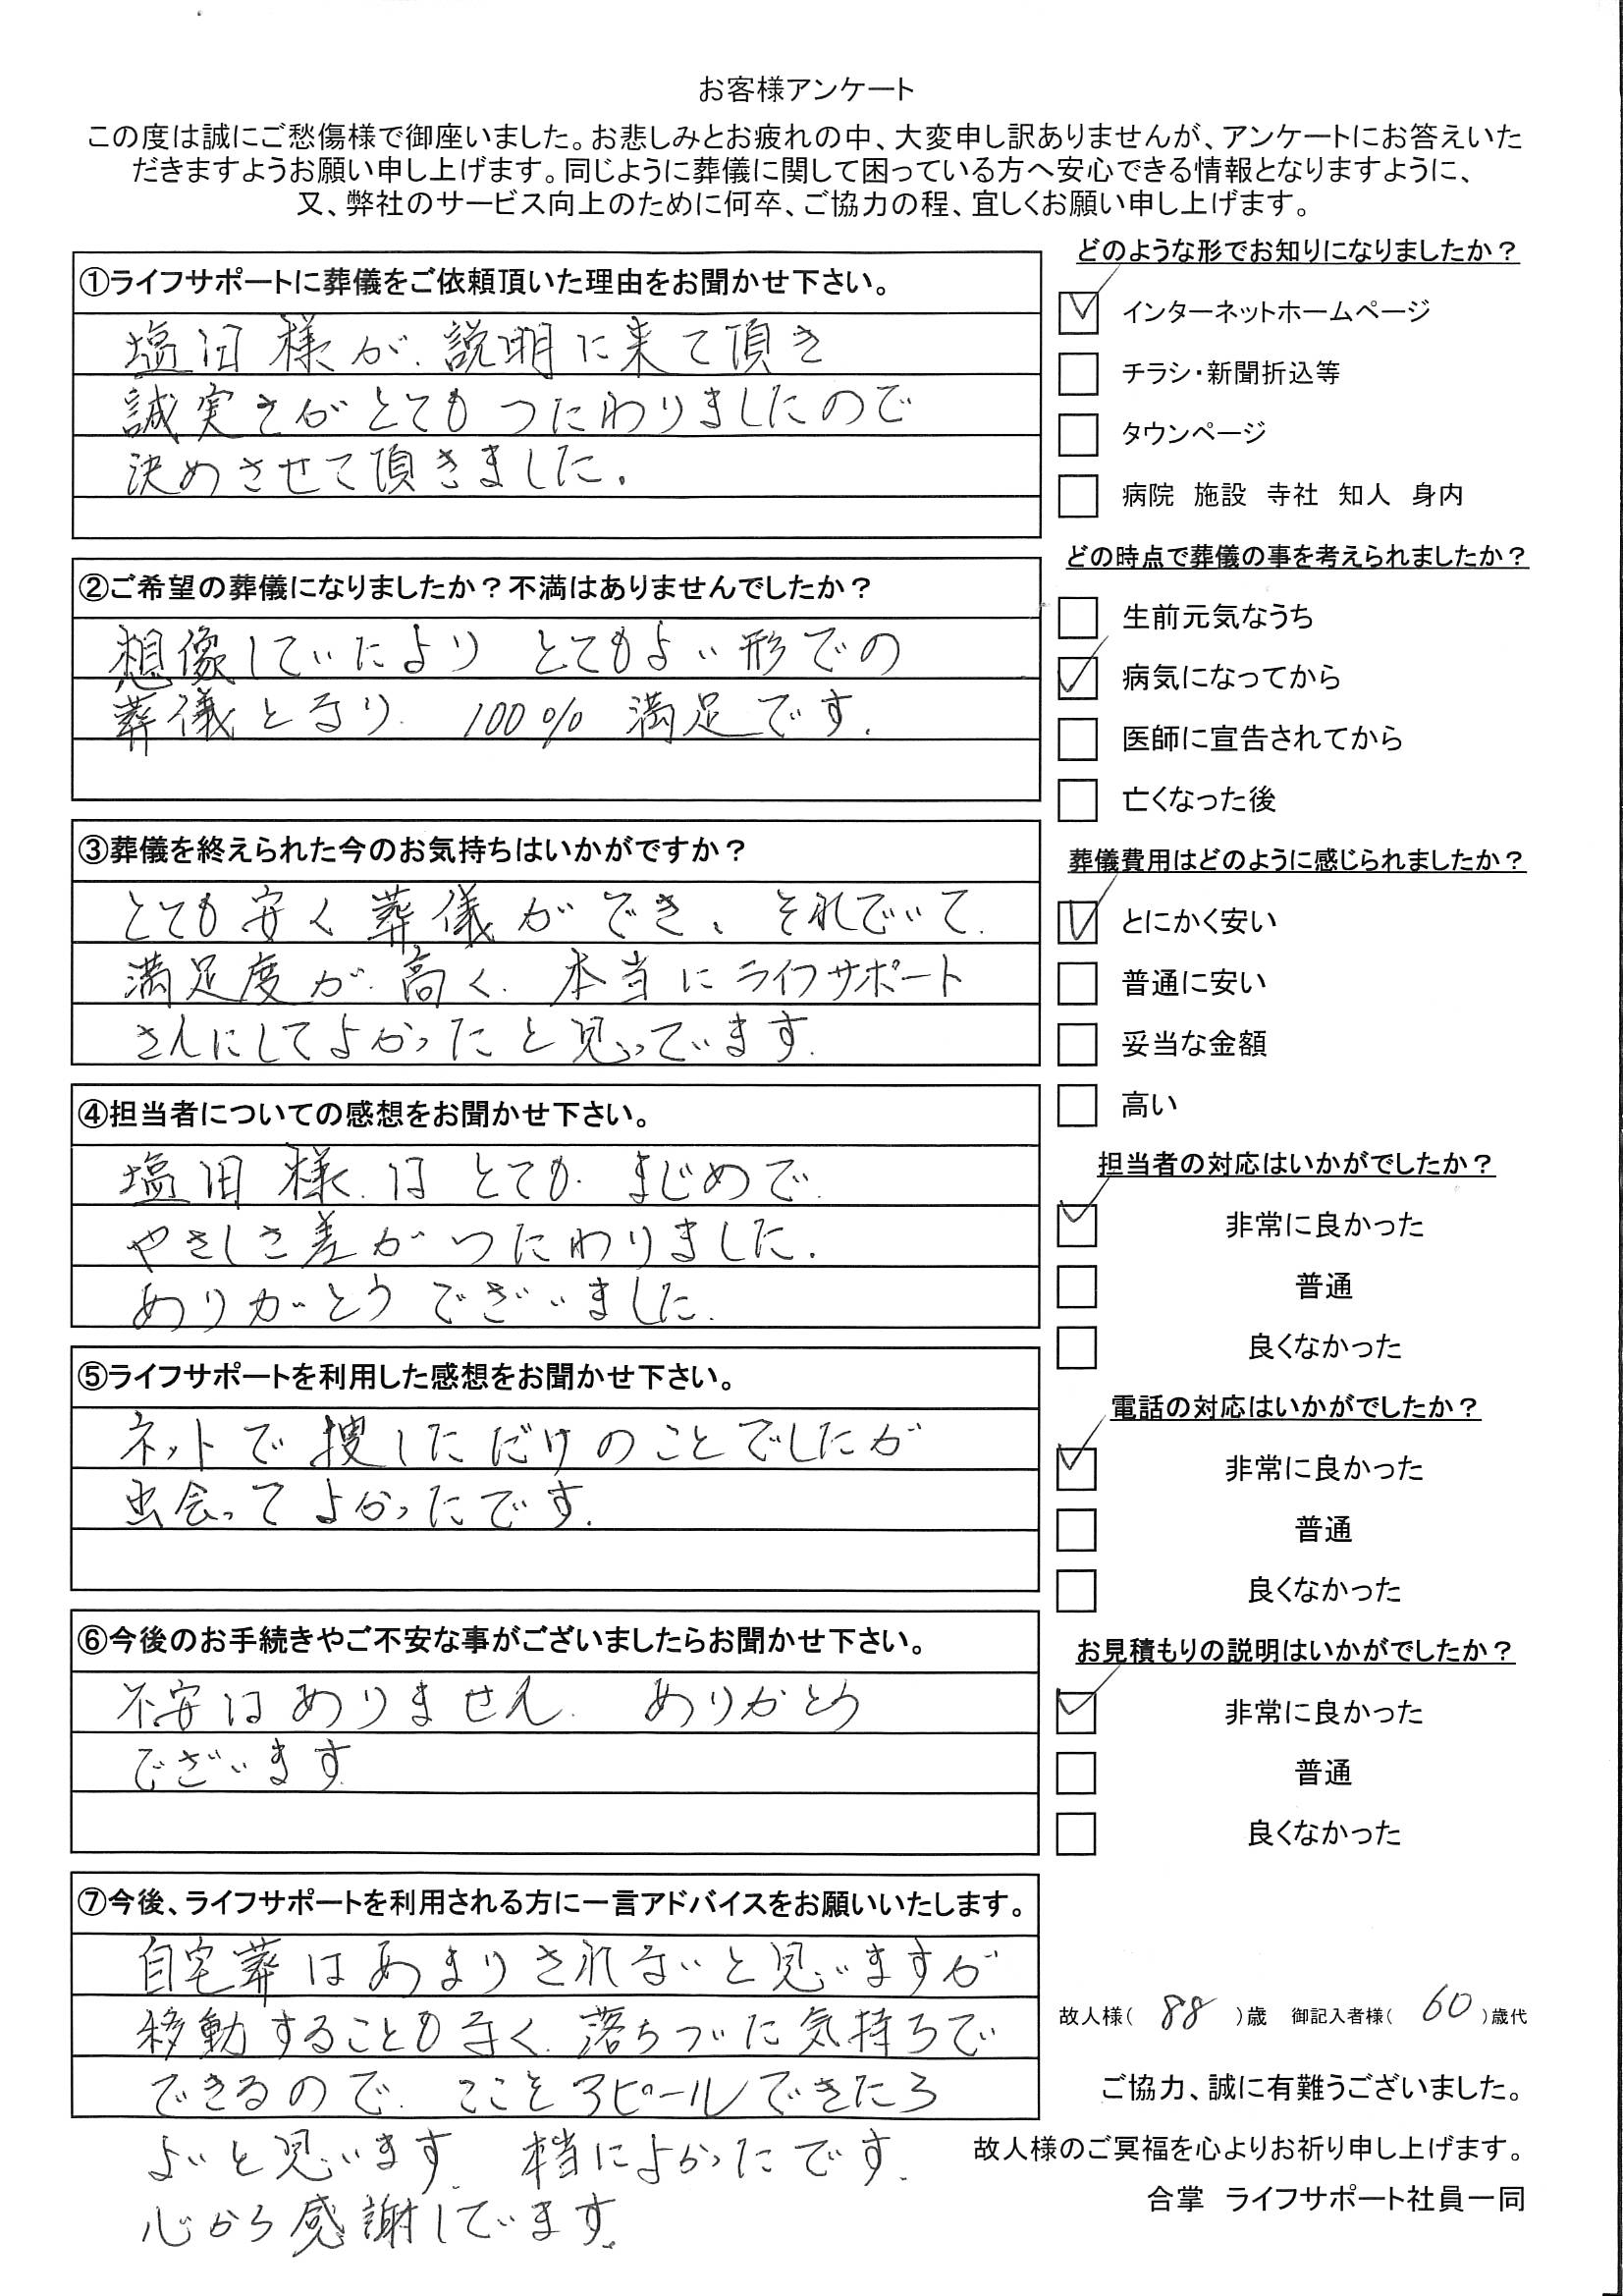 お客様アンケート
この度は誠にご愁傷様で御座いました。お悲しみとお疲れの中、大変申し訳ありませんが、アンケートにお答えいた
だきますようお願い申し上げます。同じように葬儀に関して困っている方へ安心できる情報となりますように、
又、弊社のサービス向上のために何卒、ご協力の程、宜しくお願い申し上げます。
①ライフサポートに葬儀をご依頼頂いた理由をお聞かせ下さい。
様が、説明に来て頂き
誠実さがとてもつたわりましたので
決めさせて頂きました。
②ご希望の葬儀になりましたか?不満はありませんでしたか?
想像していたより とてもよい形での
葬儀となり 100% 満足です。
③葬儀を終えられた今のお気持ちはいかがですか?
とても安く葬儀ができ、それでいて
満足度が高く、本当にライフサポート
さんにしてよかったと思っています。
④担当者についての感想をお聞かせ下さい。
様は とても まじめで
やさしさ差がつたわりました。
ありがとうございました。
⑤ライフサポートを利用した感想をお聞かせ下さい。
ネットで捜しただけのことでしたが
出会ってよかったです。
⑥今後のお手続きやご不安な事がございましたらお聞かせ下さい。
不安はありません。 ありがとう
ございます
⑦今後、ライフサポートを利用される方に一言アドバイスをお願いいたします。
自宅葬はあまりされないと思いますが
移動することもなく、落ちづいた気持ちで
できるので、ここをアピールできたら
よいと思います。 本当によかったです。
心から感謝しています。
どのような形でお知りになりましたか?
インターネットホームページ
チラシ・新聞折込等
タウンページ
病院 施設 寺社 知人 身内
どの時点で葬儀の事を考えられましたか?
生前元気なうち
病気になってから
医師に宣告されてから
亡くなった後
葬儀費用はどのように感じられましたか?
とにかく安い
普通に安い
妥当な金額
高い
担当者の対応はいかがでしたか?
非常に良かった
普通
良くなかった
電話の対応はいかがでしたか?
非常に良かった
普通
良くなかった
お見積もりの説明はいかがでしたか?
非常に良かった
普通
良くなかった
故人様( 88 )歳 御記入者様( 60 )歳代
ご協力、誠に有難うございました。
故人様のご冥福を心よりお祈り申し上げます。
合掌 ライフサポート社員一同